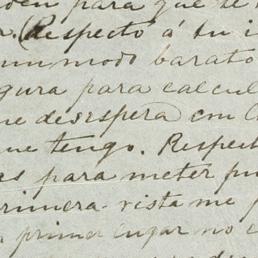 para que se
. (Respecto á tu i
un modo barato
gura para calcul
me desespera con
que tengo. Respect
es para meter pu
primera vista me p
primer lugar no e